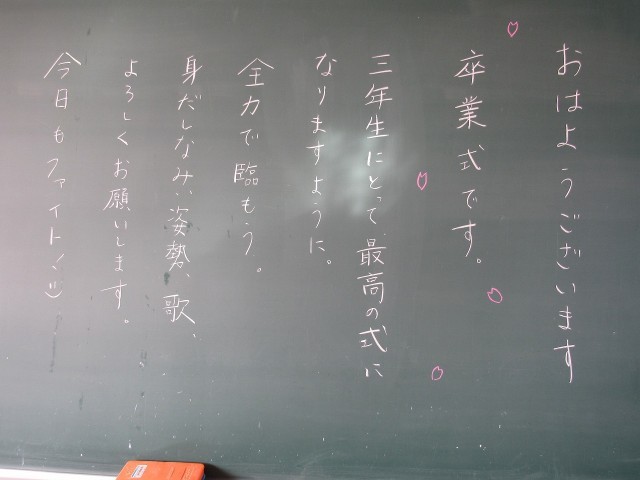 おはようございます
卒業式です。
三年生にとって最高の式に
なりますように。
全力で臨もう。
身だしなみ、姿勢、歌、
よろしくお願いします。
今日もファイト(ツ)